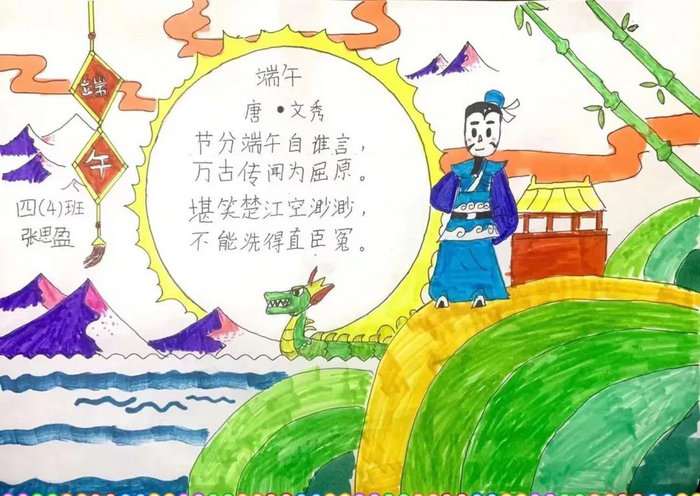 端午
四(4)班
张思盈
端午
唐•文秀
节分端午自谁言，
万古传闻为屈原。
堪笑楚江空渺渺，
不能洗得直臣冤。